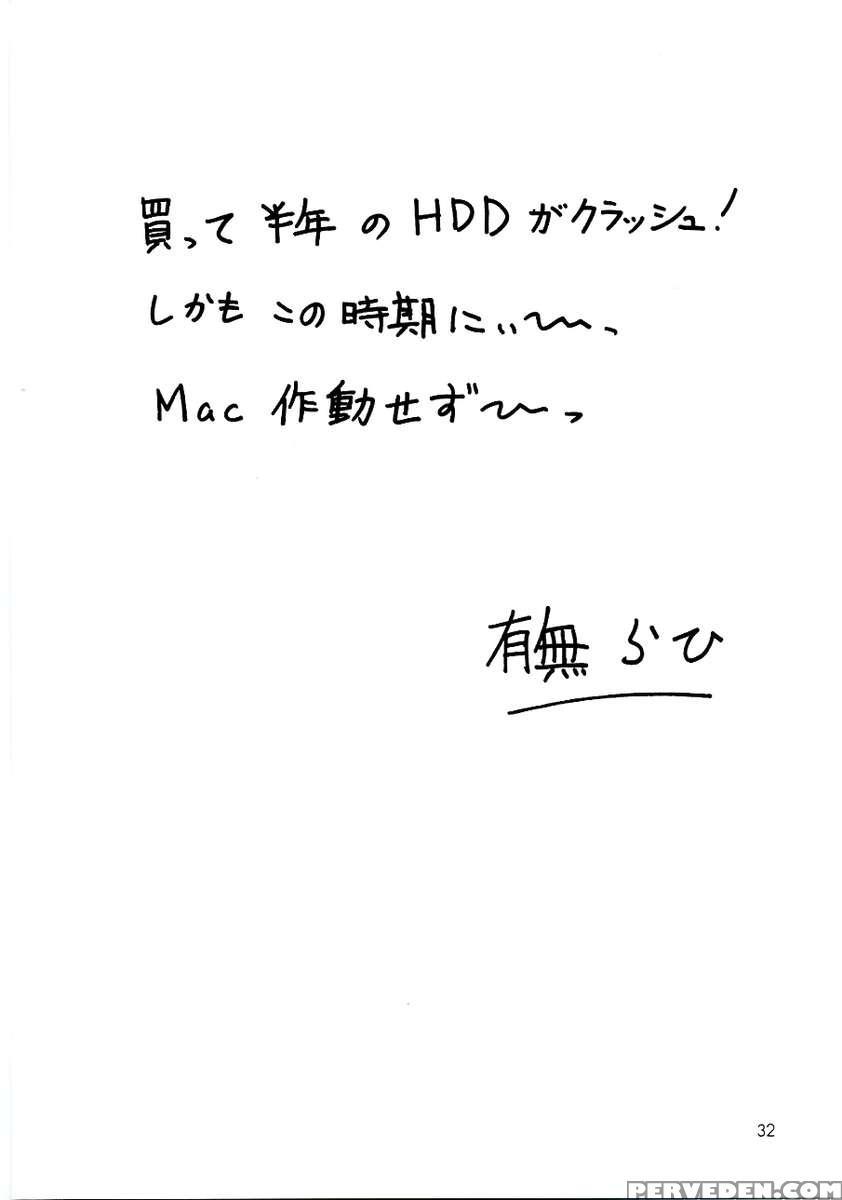 買って半年のHDDがクラッシュ!
しかもこの時期にぃ〜〜っ
Mac 作動せず〜〜っ
有無らひ
32
PERVEDEN.COM